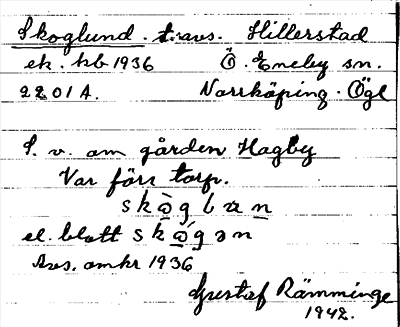 Skoglund. t. avs. Hillerstad
ek. kb 1936 Ö. Eneby sn.
2201A. Norrköping. Ögl
S. v. om gården Hagby
Var förr torp.
skògban
el. blott skó̀gən
Avs. omkr 1936
Gustaf Rämminge
1942.